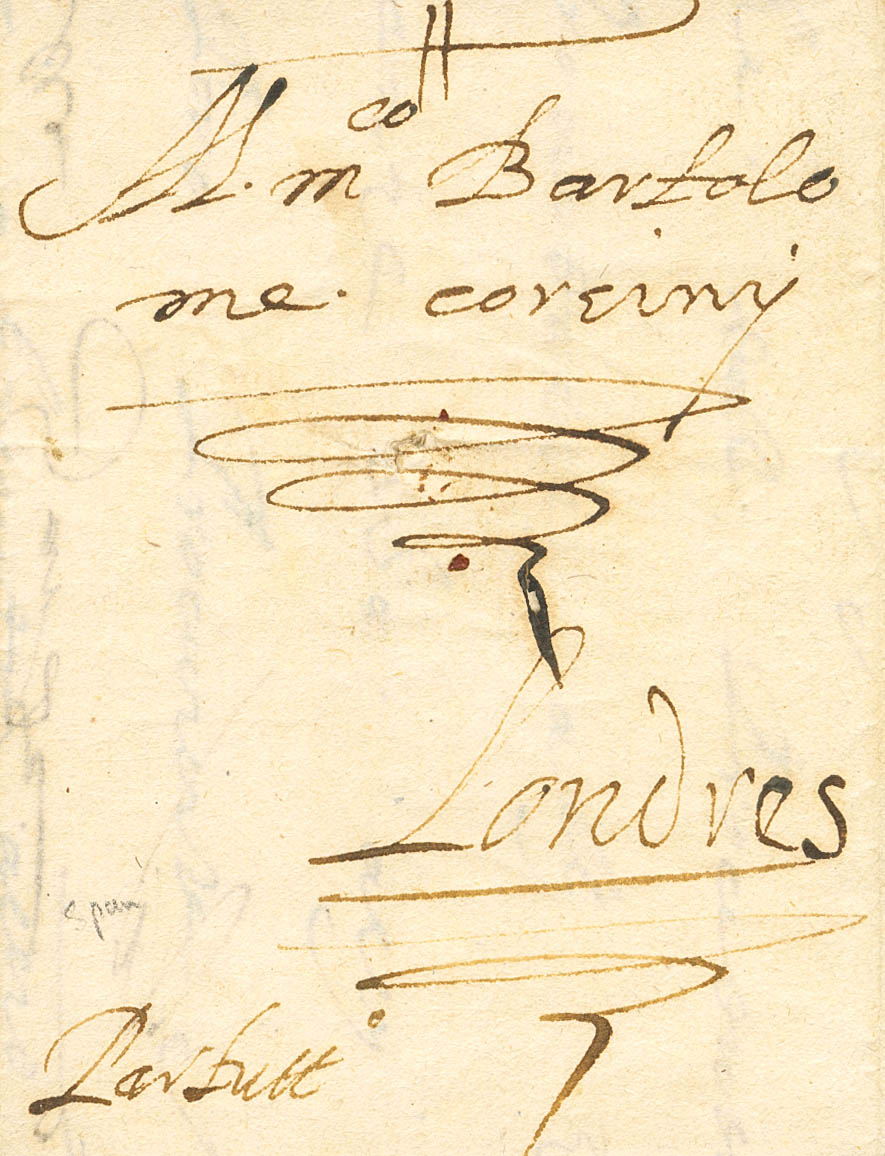 Al. m^co Bartolo
me. corcinj
Londres
Span
Partutt^o